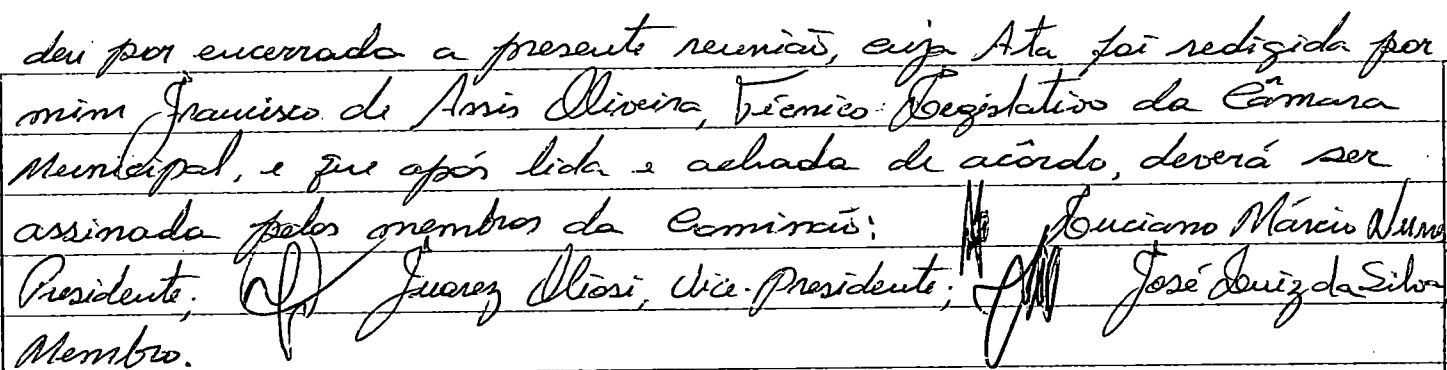 deu por encerrado a presente reunião, cuja Ata foi redigida por
mim Francisco de Assis Oliveira, Técnico Legislativo da Câmara
Municipal, e que após lida e achada de acôrdo, deverá ser
assinada pelos membros da Comissão: Luciano Márcio Nunes
Presidente; Juarez Eliosi, Vice-Presidente; José Luiz da Silva
Membro.